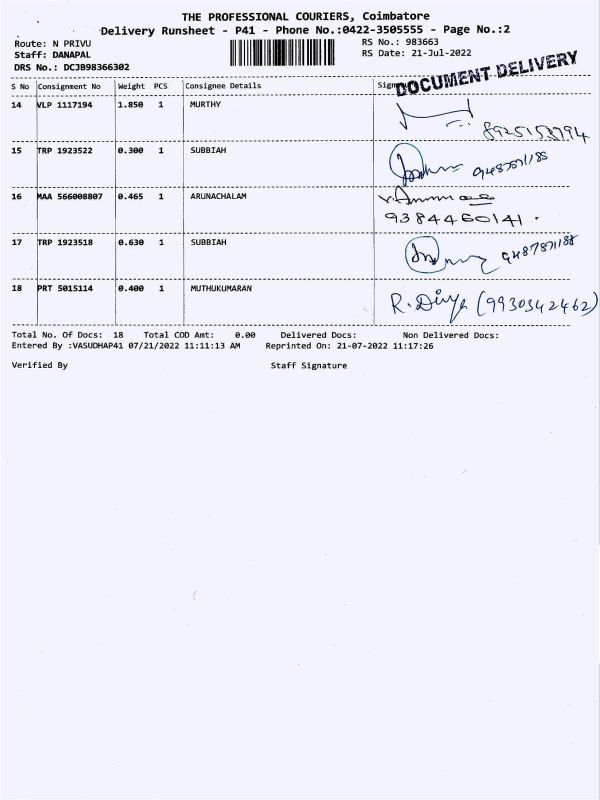 THE PROFESSIONAL COURIERS, Coimbatore
Delivery Runsheet - P41 - Phone No.:0422-3505555 - Page No.:2
Route: N PRIVU RS No.: 983663
Staff: DANAPAL RS Date: 21-Jul-2022
DRS No.: DCJB98366302
DOCUMENT DELIVERY
S No Consignment No Weight PCS Consignee Details
14 VLP 1117194 1.850 1 MURTHY
8925153794
15 TRP 1923522 0.300 1 SUBBIAH
16 MAA 566008807 0.465 1 ARUNACHALAM
9384460141.
17 TRP 1923518 0.630 1 SUBBIAH
18 PRT 5015114 0.400 1 MUTHUKUMARAN
R. Divya (9930342462)
Total No. Of Docs: 18 Total COD Amt: 0.00 Delivered Docs: Non Delivered Docs:
Entered By :VASUDHAP41 07/21/2022 11:11:13 AM Reprinted On: 21-07-2022 11:17:26
Verified By Staff Signature